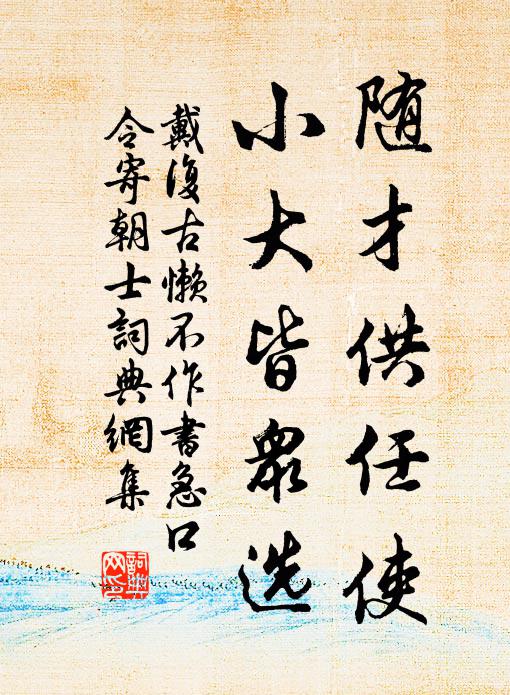 随才供任使
小大皆眾选
戴復古懒不作書急口
令寄朝士詞典網集